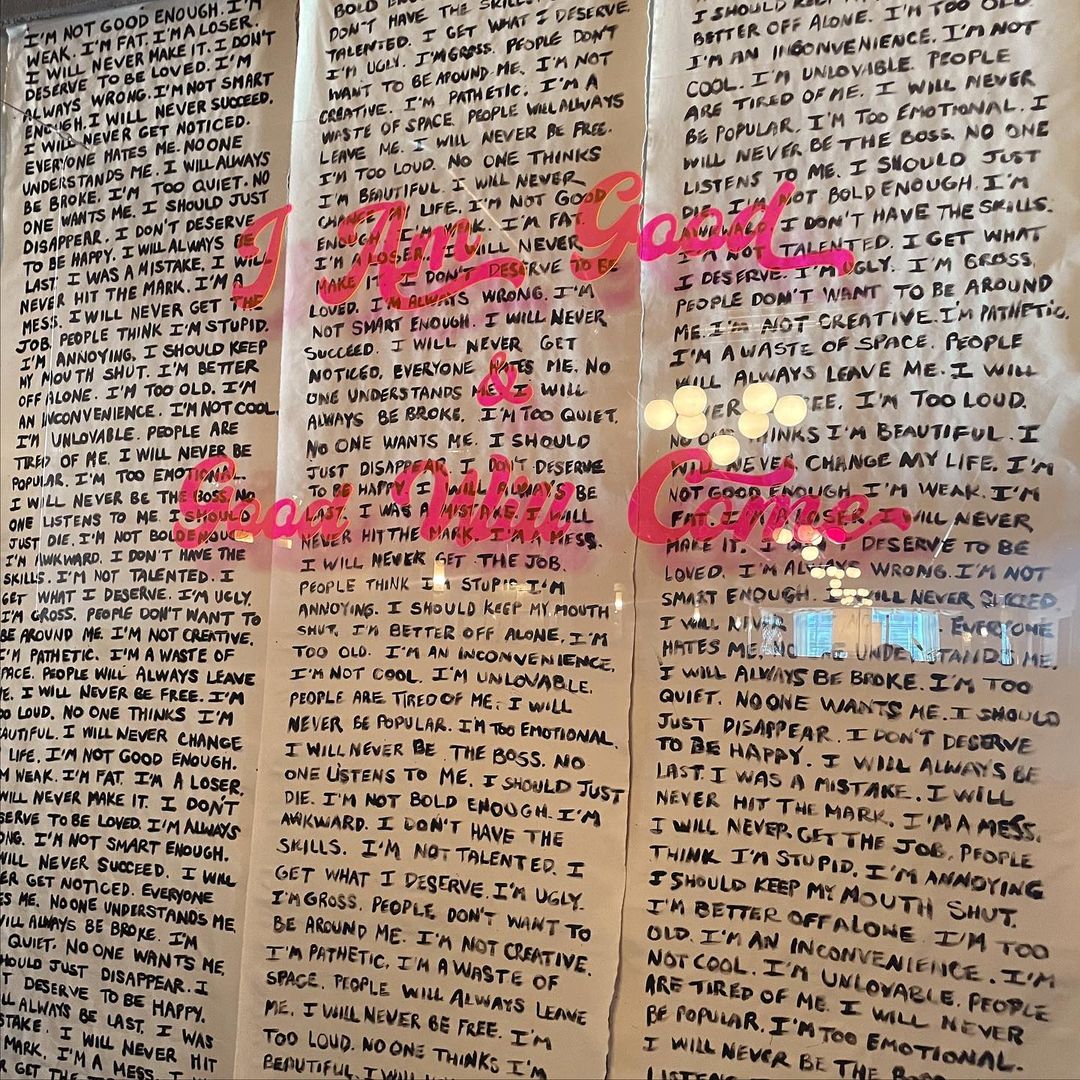 I'M NOT GOOD ENOUGH. I'M
WEAK. I'M FAT. I'M A LOSER.
I WILL NEVER MAKE IT. I DON'T
DESERVE TO BE LOVED. I'M
ALWAYS WRONG. I'M NOT SMART
ENOUGH. I WILL NEVER SUCCEED.
I WILL NEVER GET NOTICED.
EVERYONE HATES ME. NO ONE
UNDERSTANDS ME. I WILL ALWAYS
BE BROKE. I'M TOO QUIET. NO
ONE WANTS ME. I SHOULD JUST
DISAPPEAR. I DON'T DESERVE
TO BE HAPPY. I WILL ALWAYS BE
LAST. I WAS A MISTAKE. I WILL
NEVER HIT THE MARK. I'M A
MESS. I WILL NEVER GET THE
JOB. PEOPLE THINK I'M STUPID.
I'M ANNOYING. I SHOULD KEEP
MY MOUTH SHUT. I'M BETTER
OFF ALONE. I'M TOO OLD. I'M
AN INCONVENIENCE. I'M NOT COOL.
I'M UNLOVABLE. PEOPLE ARE
TIRED OF ME. I WILL NEVER BE
POPULAR. I'M TOO EMOTIONAL.
I WILL NEVER BE THE BOSS. NO
ONE LISTENS TO ME. I SHOULD
JUST DIE. I'M NOT BOLD ENOUGH.
I'M AWKWARD. I DON'T HAVE THE
SKILLS. I'M NOT TALENTED. I
GET WHAT I DESERVE. I'M UGLY.
I'M GROSS. PEOPLE DON'T WANT TO
BE AROUND ME. I'M NOT CREATIVE.
I'M PATHETIC. I'M A WASTE OF
PACE. PEOPLE WILL ALWAYS LEAVE
E. I WILL NEVER BE FREE. I'M
OO LOUD. NO ONE THINKS I'M
AUTIFUL. I WILL NEVER CHANGE
LIFE. I'M NOT GOOD ENOUGH.
M WEAK. I'M FAT. I'M A LOSER.
WILL NEVER MAKE IT. I DON'T
SERVE TO BE LOVED. I'M ALWAYS
ONG. I'M NOT SMART ENOUGH.
WILL NEVER SUCCEED. I WILL
ER GET NOTICED. EVERYONE
ES ME. NO ONE UNDERSTANDS ME.
WILL ALWAYS BE BROKE. I'M
QUIET. NO ONE WANTS ME.
HOULD JUST DISAPPEAR. I
T DESERVE TO BE HAPPY.
LL ALWAYS BE LAST. I WAS
STAKE. I WILL NEVER HIT
MARK. I'M A MESS. I
R GET THE
BOLD
DON'T HAVE THE SKILLS
TALENTED. I GET WHAT I DESERVE.
I'M UGLY. I'M GROSS. PEOPLE DON'T
WANT TO BE AROUND ME. I'M NOT
CREATIVE. I'M PATHETIC. I'M A
WASTE OF SPACE. PEOPLE WILL ALWAYS
LEAVE ME. I WILL NEVER BE FREE.
I'M TOO LOUD. NO ONE THINKS
I'M BEAUTIFUL. I WILL NEVER
CHANGE MY LIFE. I'M NOT GOOD
ENOUGH. I'M WEAK. I'M FAT.
I'M A LOSER. I WILL NEVER
MAKE IT. I DON'T DESERVE TO BE
LOVED. I'M ALWAYS WRONG. I'M
NOT SMART ENOUGH. I WILL NEVER
SUCCEED. I WILL NEVER GET
NOTICED. EVERYONE HATES ME. NO
ONE UNDERSTANDS ME. I WILL
ALWAYS BE BROKE. I'M TOO QUIET.
NO ONE WANTS ME. I SHOULD
JUST DISAPPEAR. I DON'T DESERVE
TO BE HAPPY. I WILL ALWAYS BE
LAST. I WAS A MISTAKE. I WILL
NEVER HIT THE MARK. I'M A MESS.
I WILL NEVER GET THE JOB.
PEOPLE THINK I'M STUPID. I'M
ANNOYING. I SHOULD KEEP MY MOUTH
SHUT. I'M BETTER OFF ALONE. I'M
TOO OLD. I'M AN INCONVENIENCE.
I'M NOT COOL. I'M UNLOVABLE.
PEOPLE ARE TIRED OF ME. I WILL
NEVER BE POPULAR. I'M TOO EMOTIONAL.
I WILL NEVER BE THE BOSS. NO
ONE LISTENS TO ME. I SHOULD JUST
DIE. I'M NOT BOLD ENOUGH. I'M
AWKWARD. I DON'T HAVE THE
SKILLS. I'M NOT TALENTED. I
GET WHAT I DESERVE. I'M UGLY.
I'M GROSS. PEOPLE DON'T WANT TO
BE AROUND ME. I'M NOT CREATIVE.
I'M PATHETIC. I'M A WASTE OF
SPACE. PEOPLE WILL ALWAYS LEAVE
ME. I WILL NEVER BE FREE. I'M
TOO LOUD. NO ONE THINKS I'M
BEAUTIFUL. I WILL
I SHOULD KEEP
BETTER OFF ALONE. I'M TOO OLD.
I'M AN INCONVENIENCE. I'M NOT
COOL. I'M UNLOVABLE. PEOPLE
ARE TIRED OF ME. I WILL NEVER
BE POPULAR. I'M TOO EMOTIONAL. I
WILL NEVER BE THE BOSS. NO ONE
LISTENS TO ME. I SHOULD JUST
DIE. I'M NOT BOLD ENOUGH. I'M
AWKWARD. I DON'T HAVE THE SKILLS.
I'M NOT TALENTED. I GET WHAT
I DESERVE. I'M UGLY. I'M GROSS.
PEOPLE DON'T WANT TO BE AROUND
ME. I'M NOT CREATIVE. I'M PATHETIC.
I'M A WASTE OF SPACE. PEOPLE
WILL ALWAYS LEAVE ME. I WILL
I'M TOO LOUD.
NO ONE THINKS I'M BEAUTIFUL. I
WILL NEVER CHANGE MY LIFE. I'M
NOT GOOD ENOUGH. I'M WEAK. I'M
FAT. I'M A LOSER. I WILL NEVER
MAKE IT. I DESERVE TO BE
LOVED. I'M ALWAYS WRONG. I'M NOT
SMART ENOUGH. I WILL NEVER SUCCEED.
I WILL NEVER EVERYONE
HATES ME. UNDERSTANDS ME.
I WILL ALWAYS BE BROKE. I'M TOO
QUIET. NO ONE WANTS ME. I SHOULD
JUST DISAPPEAR. I DON'T DESERVE
TO BE HAPPY. I WILL ALWAYS BE
LAST. I WAS A MISTAKE. I WILL
NEVER HIT THE MARK. I'M A MESS.
I WILL NEVER GET THE JOB. PEOPLE
THINK I'M STUPID. I'M ANNOYING
I SHOULD KEEP MY MOUTH SHUT.
I'M BETTER OFF ALONE. I'M TOO
OLD. I'M AN INCONVENIENCE. I'M
NOT COOL. I'M UNLOVABLE. PEOPLE
ARE TIRED OF ME. I WILL NEVER
BE POPULAR. I'M TOO EMOTIONAL.
I WILL NEVER BE THE BOSS
LISTENS
I Am Good
&
Good Will Come